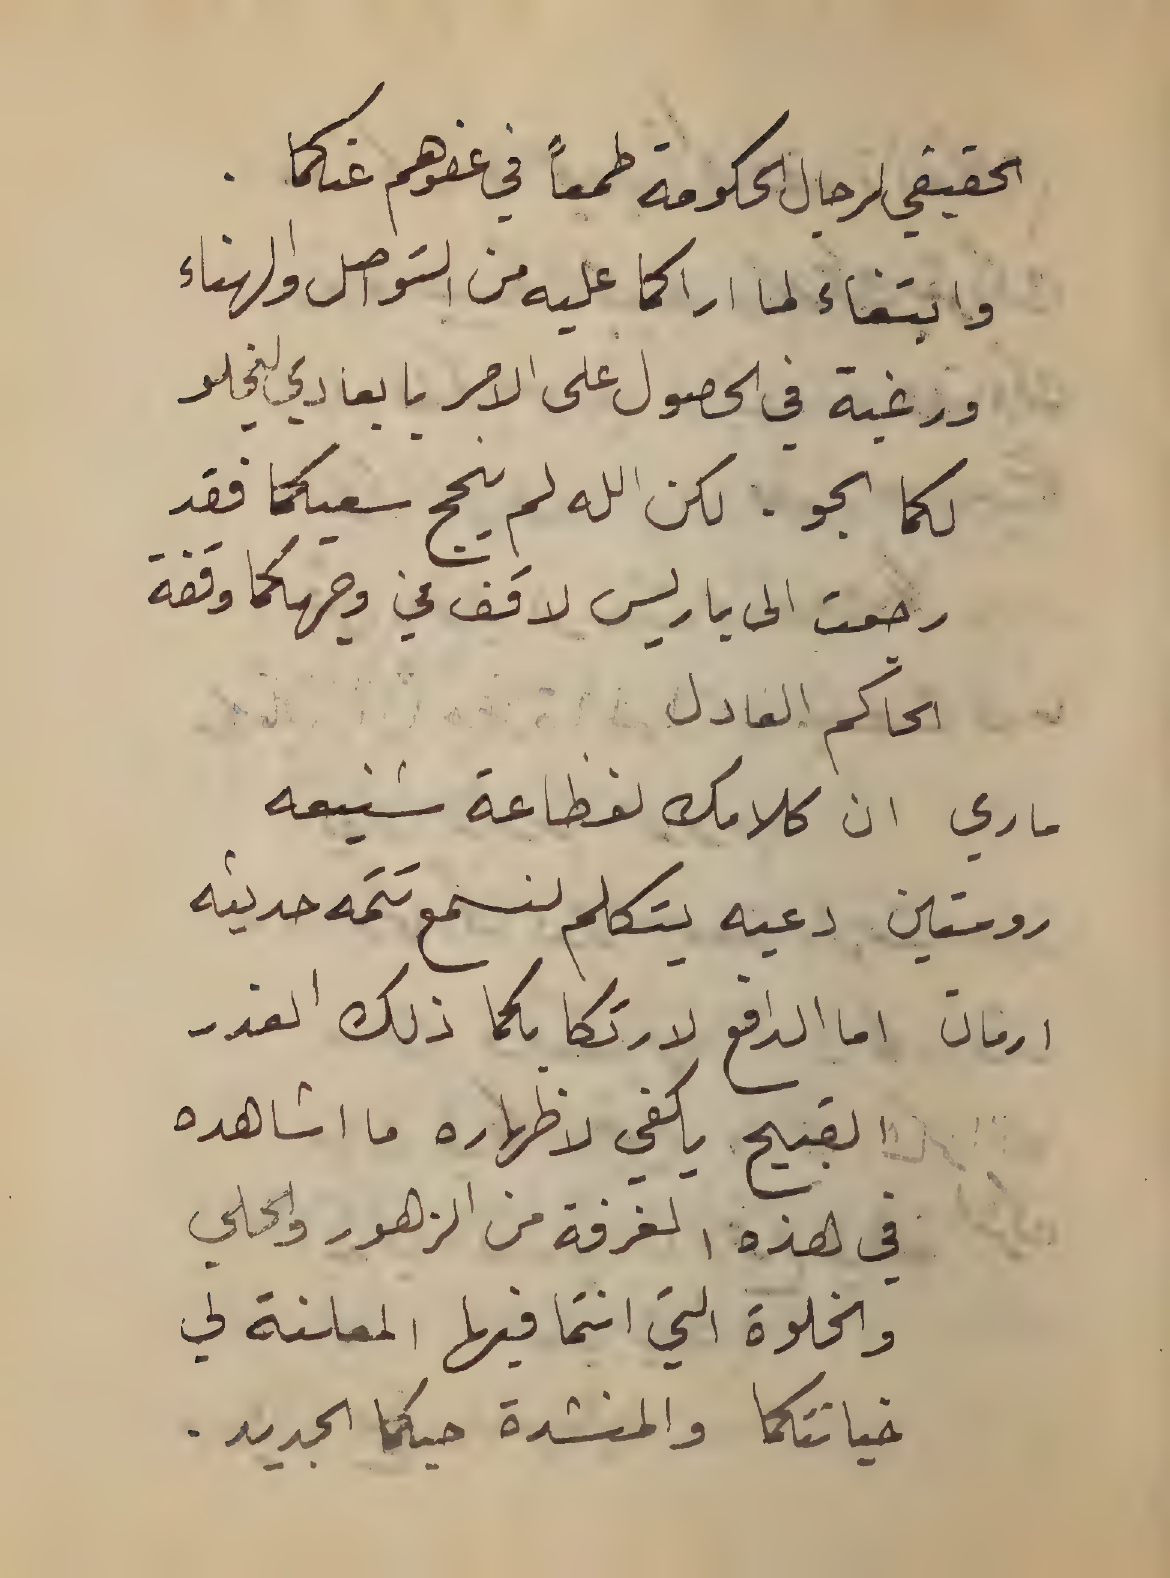 الحقيقي لرجال الحكومة طمعاً في عفوهم عنكما .
وابتغاء لما اراكما عليه من التواصل والهناء
ورغبة في الحصول على الاجر بابعادي ليخلو
لكما الجو . لكن الله لم ينجح سعيكما فقد
رجعت الى باريس لاقف في وجهكما وقفة
الحاكم العادل
ماري ان كلامك لفظاعة شنيعه
روستين دعيه يتكلم لنسمع تتمه حديثه
ارمان اما الدافع لارتكابكما ذلك الغدر
القبيح ياكفي لاظهاره ما اشاهده
في هذه الغرفة من الزهور والحلي
والخلوة التي انتما فيها المعلنة لي
خيانتكما والمنشدة حبكما الجديد .